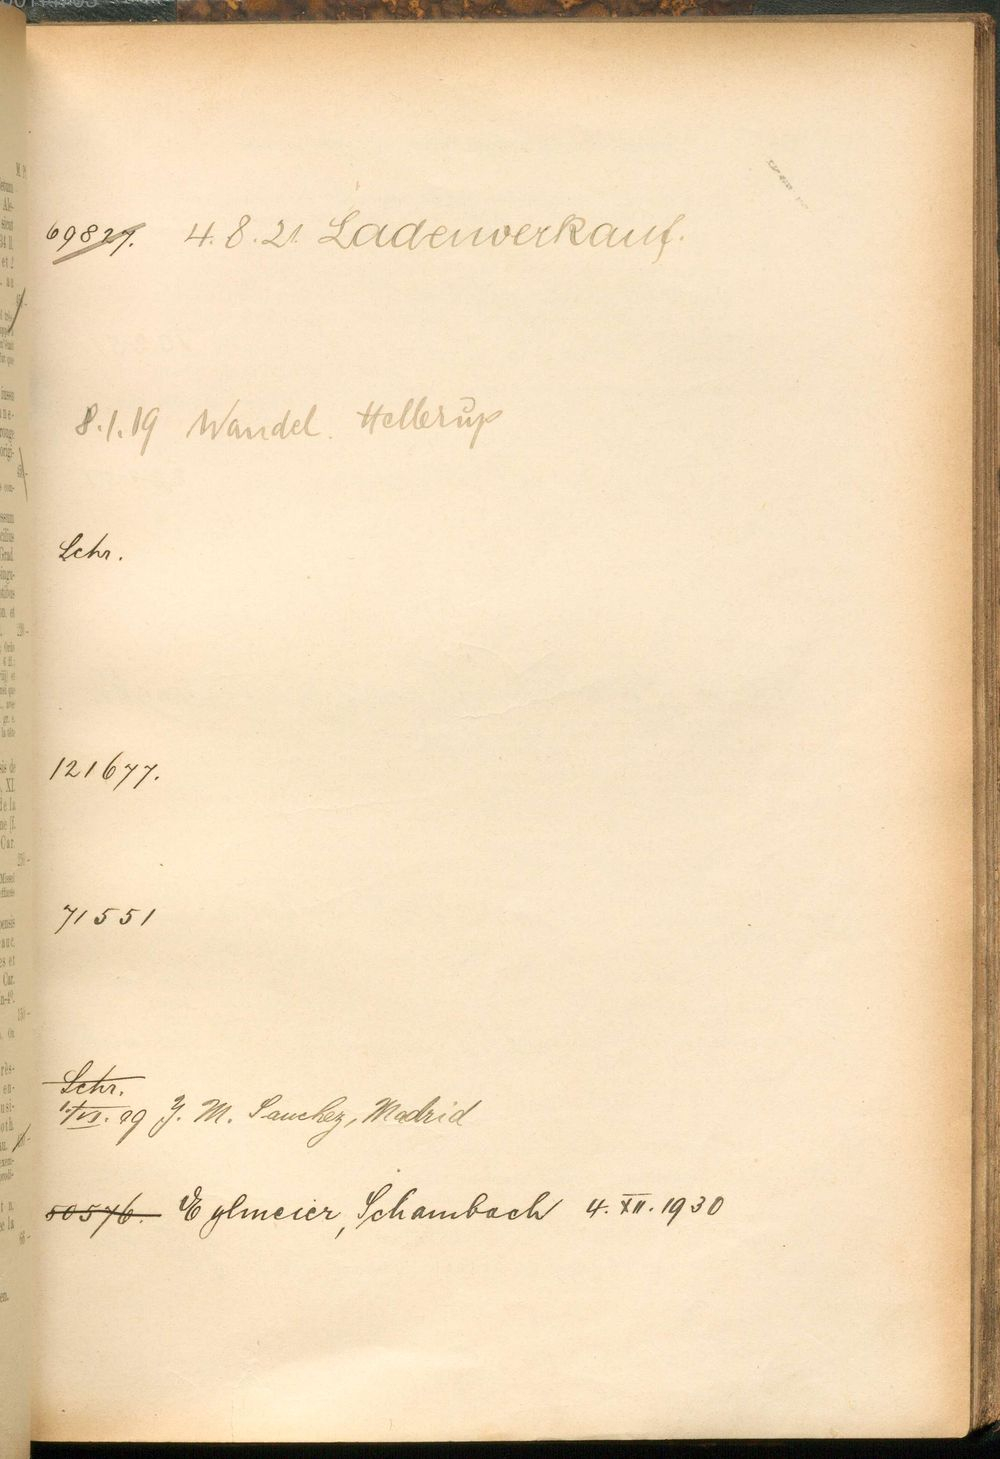 69827. 4.8.21 Ladenverkauf.
8.1.19 Wandel. Hellerup
Schr.
121677.
71551
Schr.
1./VI. 29 J. M. Sanchez, Madrid
50576. Eglmeier, Schambach 4. XII. 1930